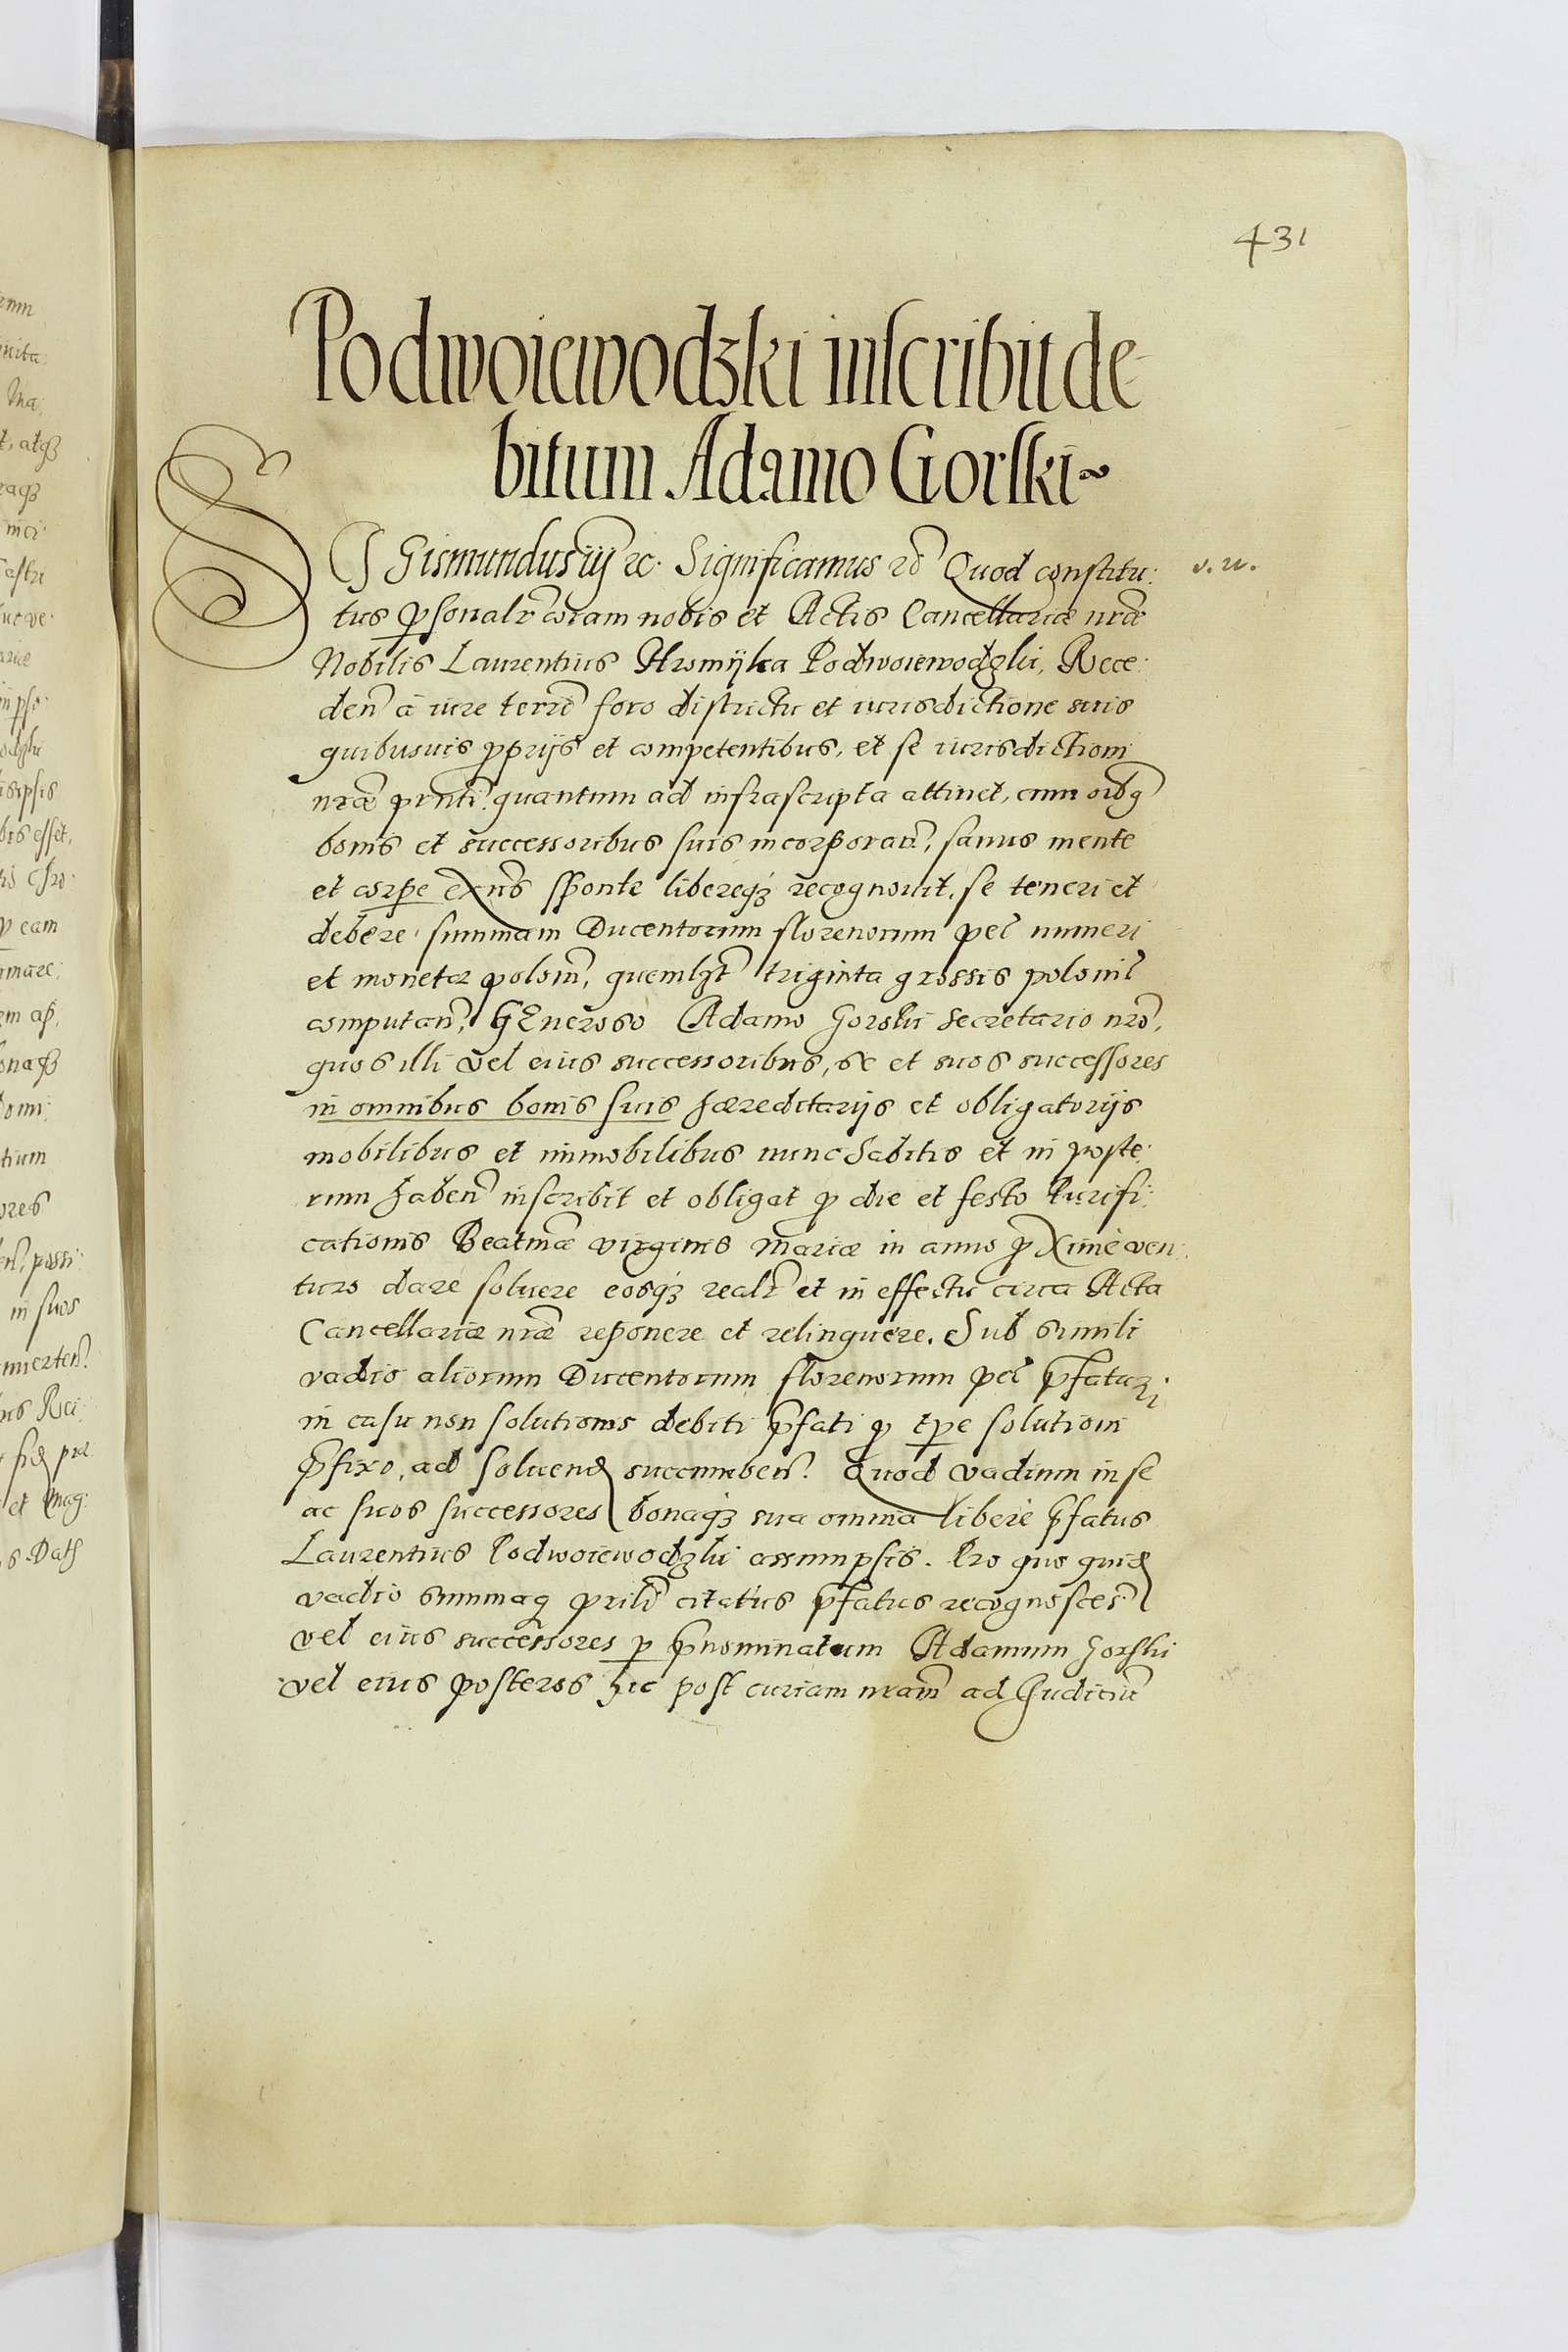 431
Podwoiewodzki inscribit de-
bitum Adamo Gorski~
SIGismundus iij rc. Significamus rc Quod constitu:
v. w.
tus psonalr coram nobis et Actis Cancellariæ nræ
Nobilis Laurentius Hromijka Podwoiewodzki, Rece:
den à iure terre foro districtu et iurisdictione suis
quibusuis pprijs et competentibus, et se iurisdictioni
nræ pnti quantum ad infrascripta attinet, cum oibq
bonis et successoribus suis incorporan, sanus mente
et corpe exns sponte libereqz recognouit, se teneri et
debere summam Ducentorum florenorum pol numeri
et monetæ polon, quemlzt triginta grossis polonil
computan, GEneroso Adamo Gorski Secretario nro,
quos illi vel eius successoribus, se et suos successores
in omnibus bonis suis hæreditarijs et obligatorijs
mobilibus et immobilibus nunc habitis et in poste:
rum haben inscribit et obligat p die et festo Purifi:
cationis Beatmæ virginis Mariæ in anno pXimè ven:
turo dare soluere eosqz realr et in effectu circa Acta
Cancellariæ nræ reponere et relinquere. Sub simili
vadio aliorum Ducentorum florenorum pol pfatur
in casu non solutionis debiti pfati p tpe solutioni
pfixo, ad soluend succumben. Quod vadium in se
ac suos successores bonaqz sua omnia liberè pfatus
Laurentius Podwoiewodzki assumpsis. Pro quo quid
vadio summaq prili citatus pfatus recognoscens
vel eius successores p pnominatum Adamum Gorski
vel eius posteros hic post curiam nram ad Iudiciū